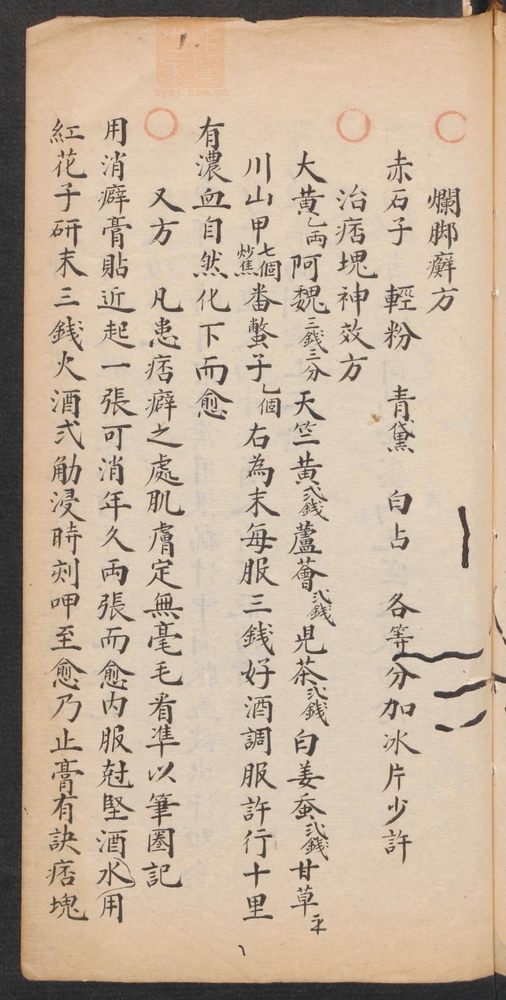 爛脚癬方
赤石子 輕粉 青黛 白占 各等分加冰片少許
治痞塊神效方
大黃乙両阿魏三錢三分天竺黃弍錢蘆薈弍錢児茶弍錢白姜蚕弍錢甘草
川山甲七個炒焦畨鱉子乙個右為末每服三錢好酒調服許行十里
有濃血自然化下而愈
又方 凡患痞癖之處肌膚定無毫毛看準以筆圏記
用消癖膏貼近起一張可消年久両張而愈內服尅堅酒水用
紅花子研末三錢火酒弍觔浸時刻呷至愈乃止膏有訣痞塊